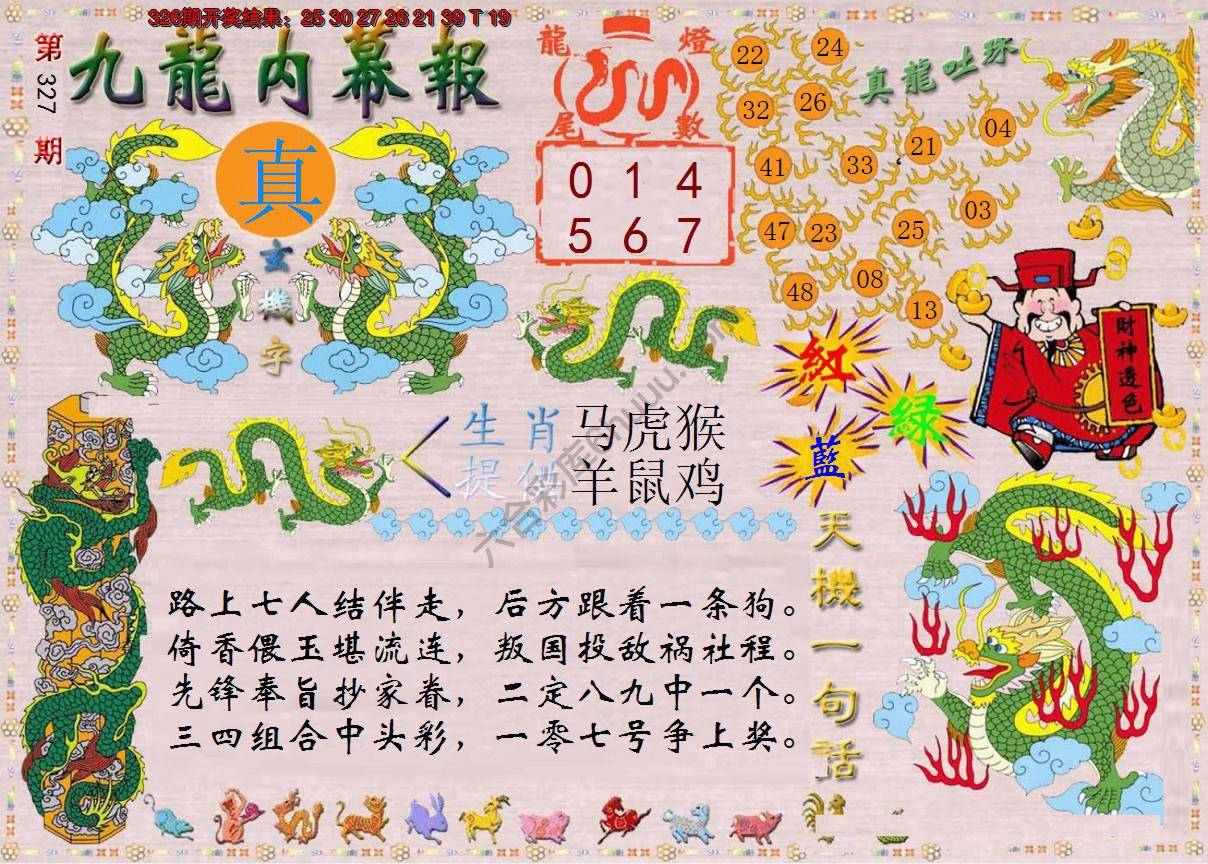 326期开奖结果：25 30 27 26 21 39 T 19
第327期
九龍内幕報
真
玄機字
龍燈
尾數
0 1 4
5 6 7
真龍吐珠
22 24
32 26
41 33 21 04
47 23 25 03
48 08 13
財神透色
紅
綠
藍
生肖 马虎猴
提供 羊鼠鸡
天機一句话
路上七人结伴走，后方跟着一条狗。
倚香偎玉堪流连，叛国投敌祸社程。
先锋奉旨抄家眷，二定八九中一个。
三四组合中头彩，一零七号争上奖。